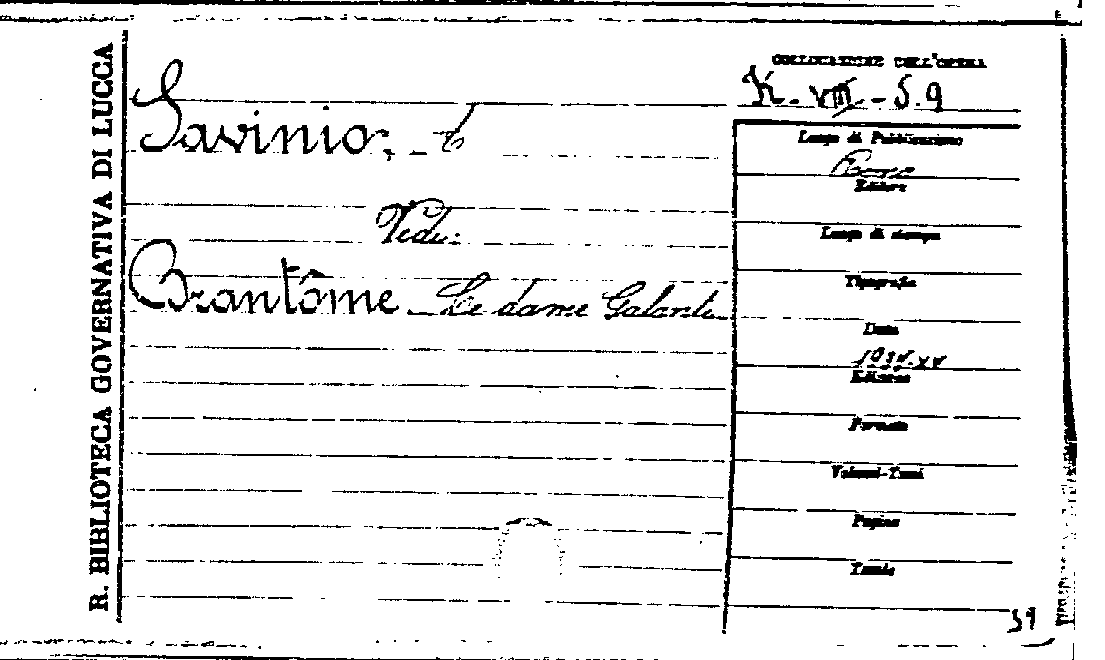 R. BIBLIOTECA GOVERNATIVA DI LUCCA
COLLOCAZIONE DELL'OPERA
K. VIII - S. 9
Savinio, A
Vedi:
Brantôme Le dame Galanti
Luogo di Pubblicazione
Roma
Editore
Luogo di stampa
Tipografia
Data
1937. XV
Edizione
Formato
Volumi-Tomi
Pagine
Tavole
59